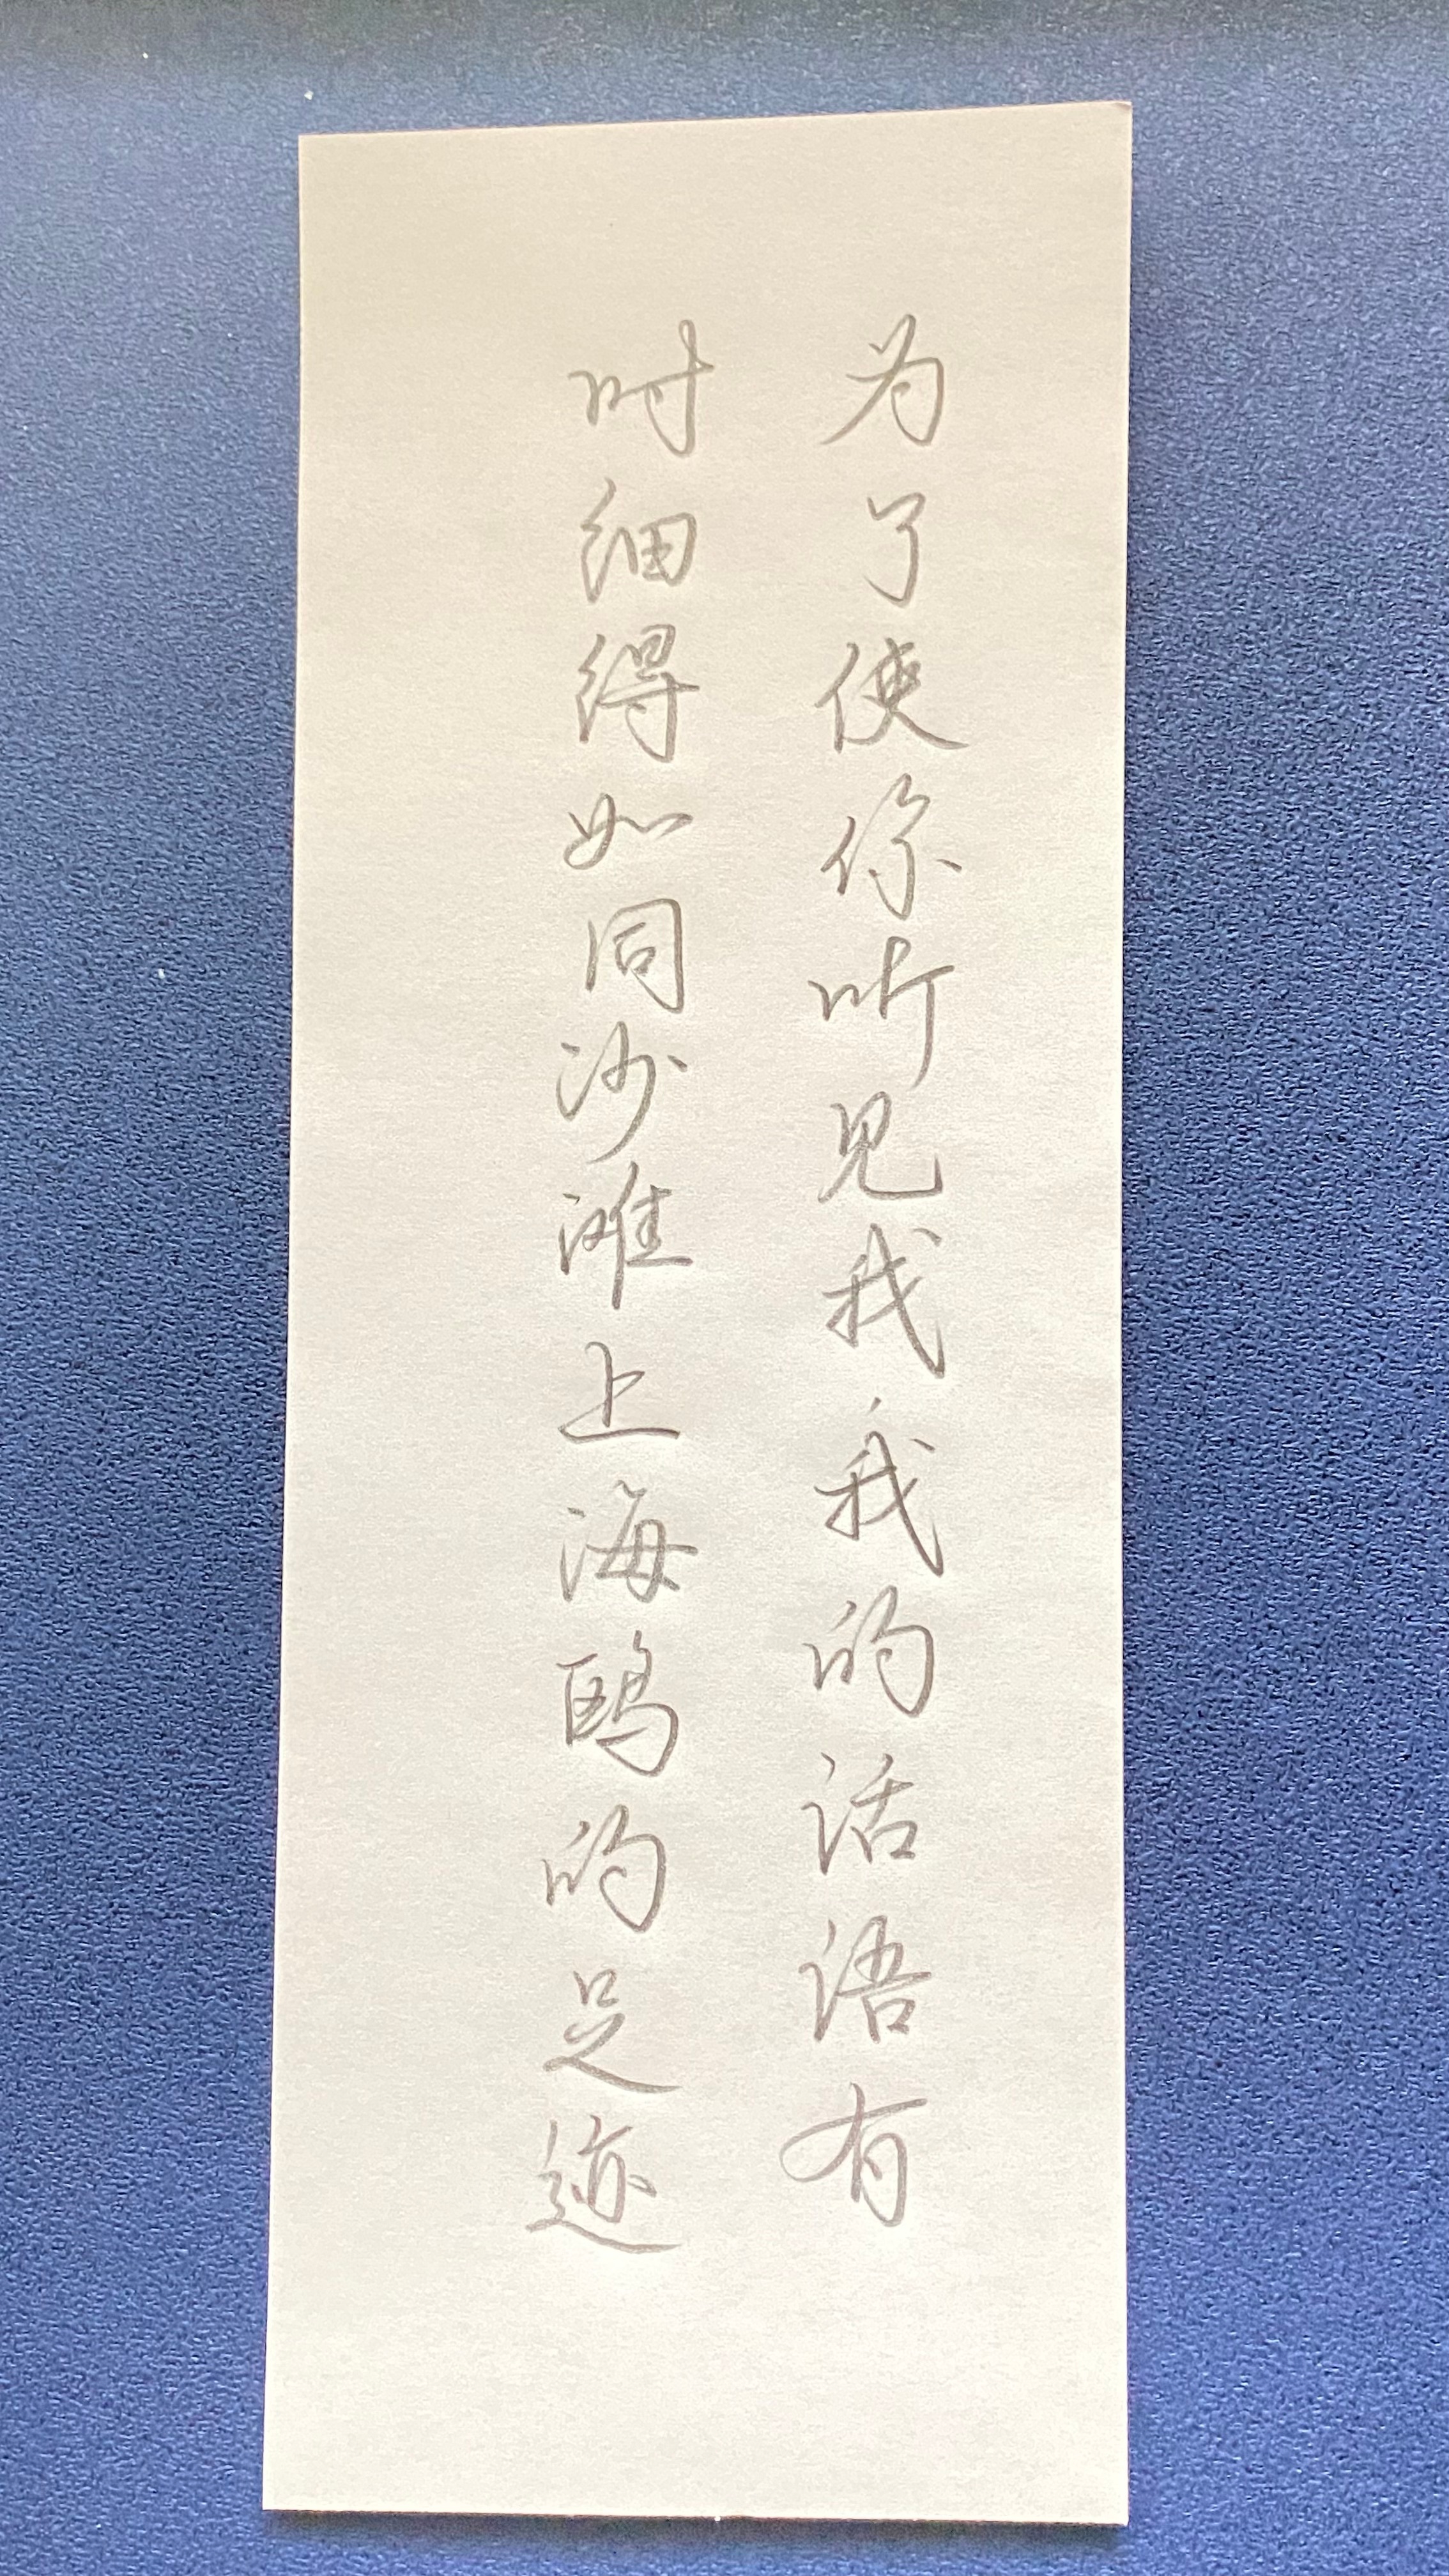 为了使你听见我我的话语有
时细得如同沙滩上海鸥的足迹